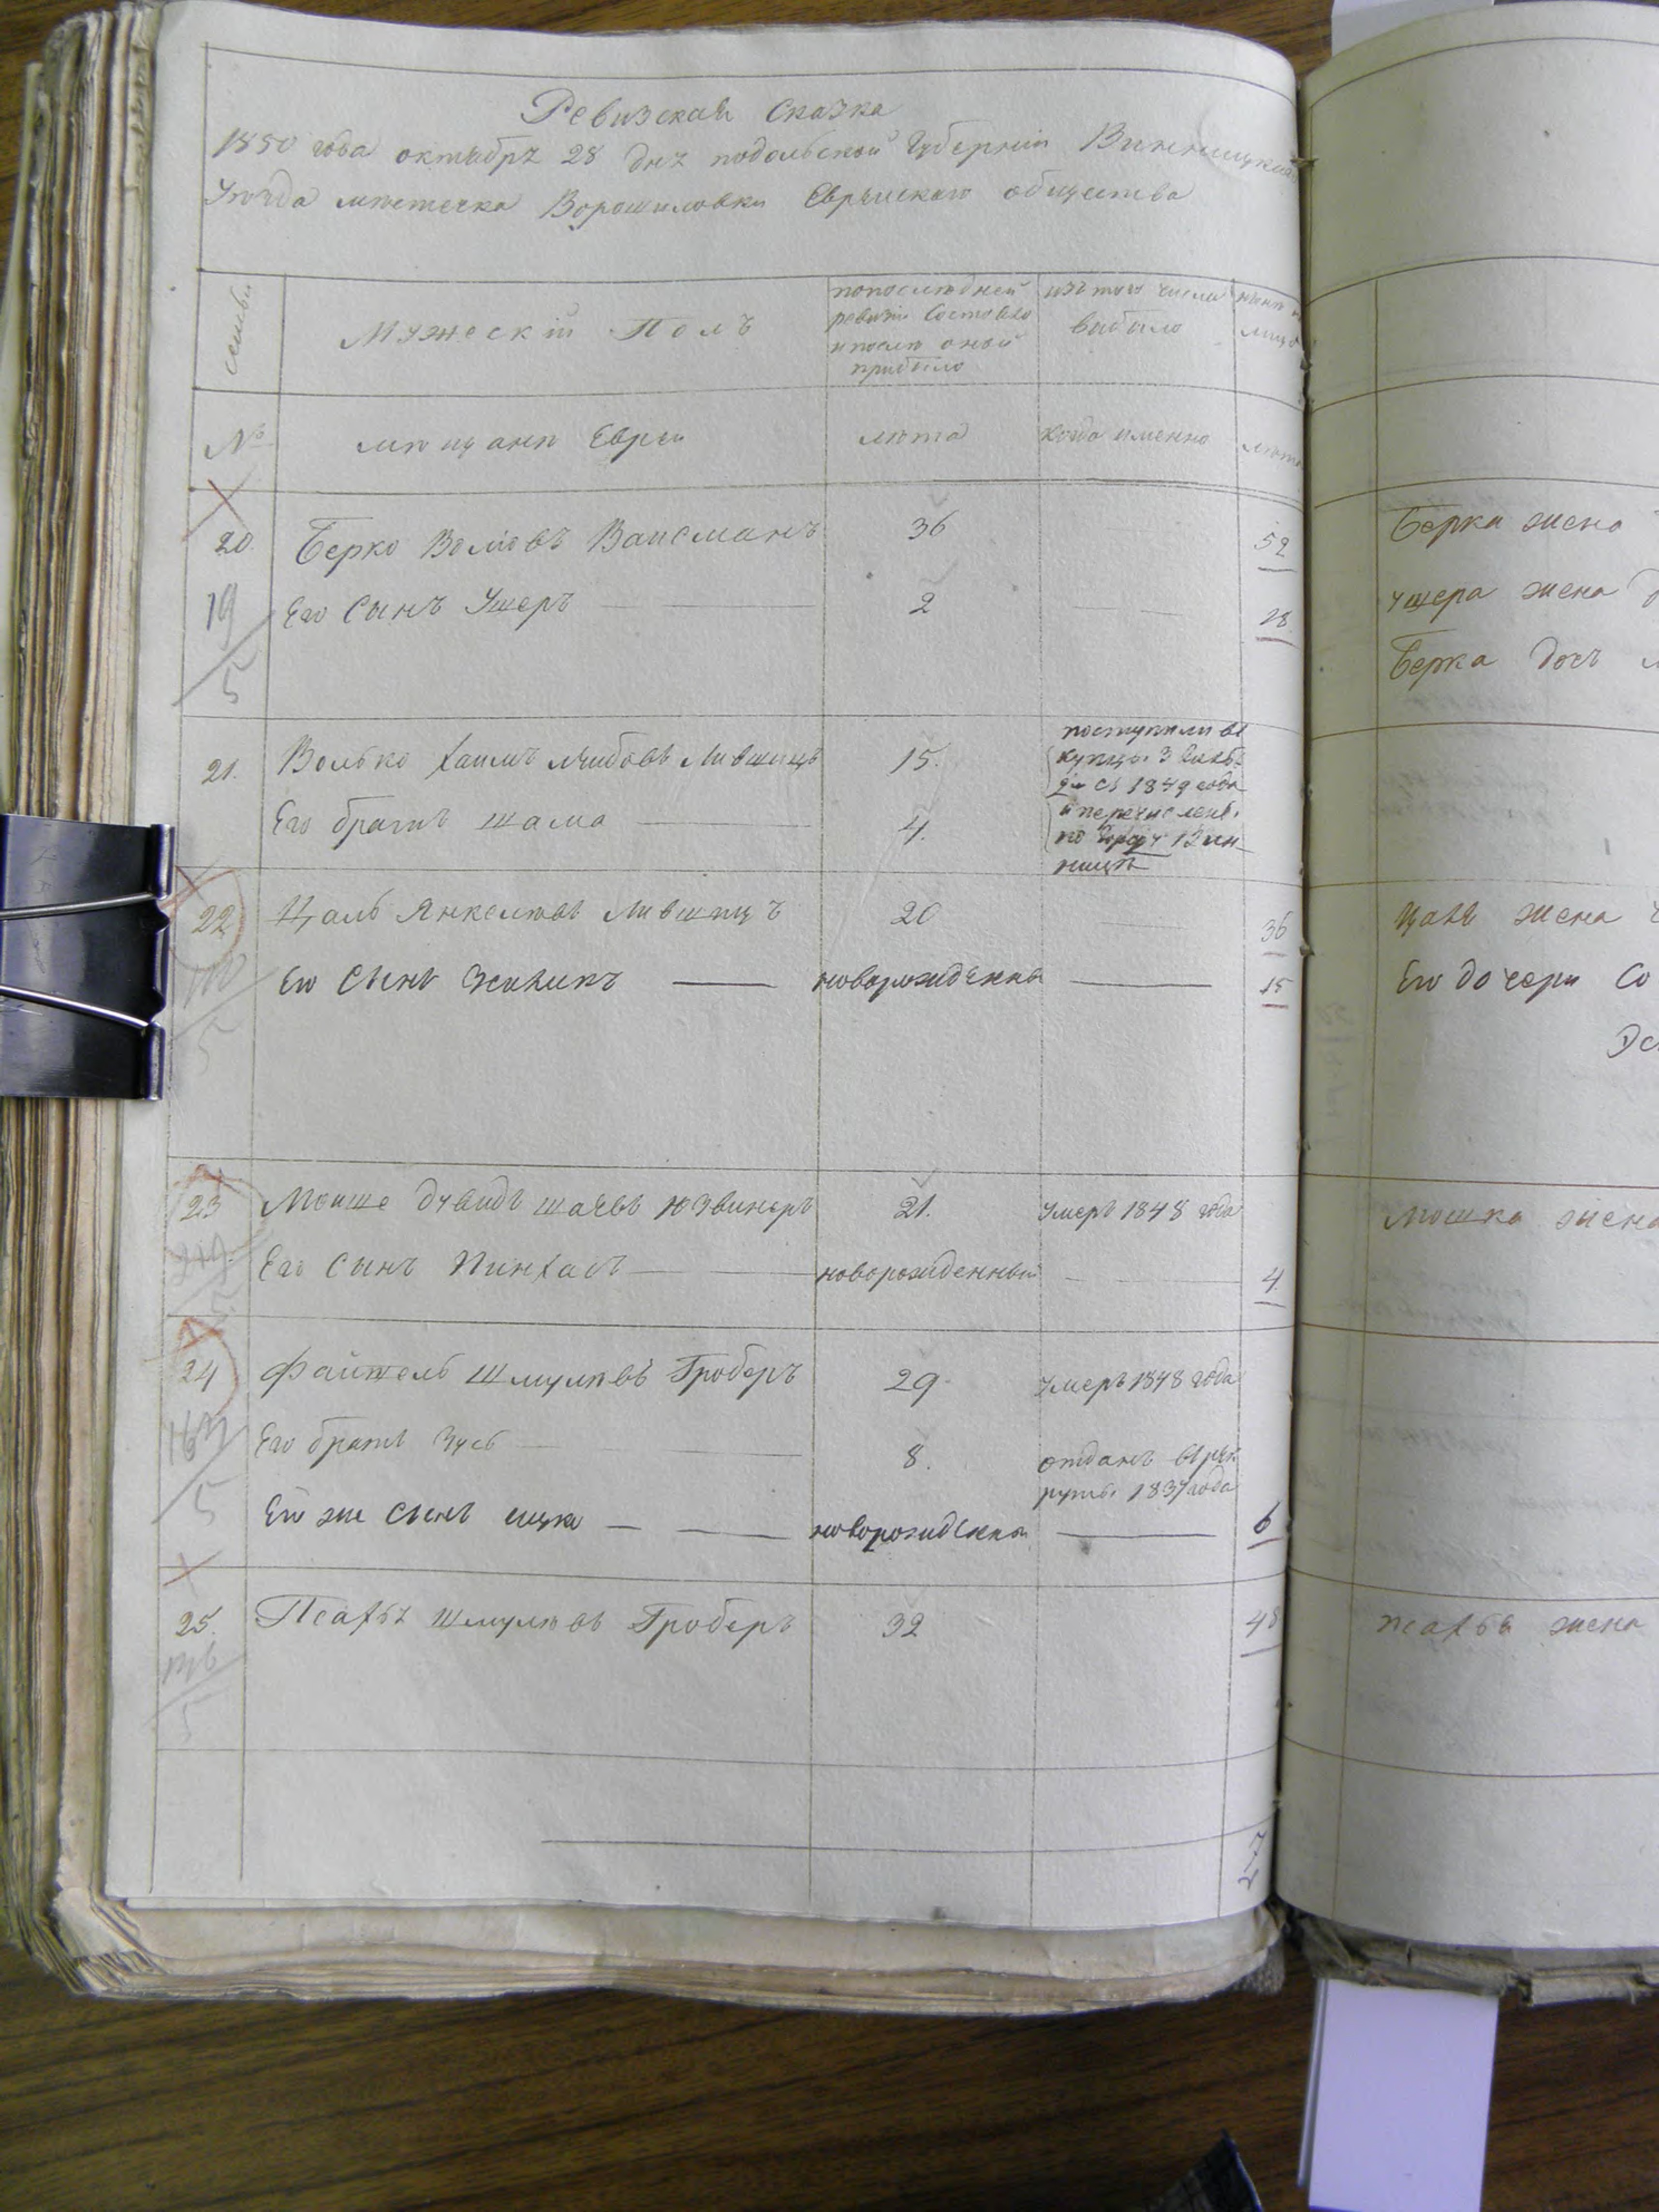 Ревизская Сказка
1850 года октября 28 дня подольской Губерніи Винницкаго
Уезда местечка Ворошиловки Еврейскаго общества
семьи
Мужескій Полъ
попоследней ревизіи Состояло и после оной прибыло
изъ того числа выбыло
ныне
№
мещане Евреи
лета
когда именно
лета
20. Берко Волковъ Вайсманъ 36 52
Его Сынъ Ушеръ 2 18.
19
5
21. Волько Хаимъ Лейбовъ Лившицъ 15.
Его братъ Шама 4.
поступили въ
купцы 3 Гиль-
ди съ 1849 года
и перечислены
по городу Вин-
ницѣ
22 Цаль Янкелевъ Лившицъ 20 36
Его Сынъ новорожденны 15
5
23 Моише Дувидъ Шаевъ Юзвинеръ 21. Умеръ 1848 года
Его Сынъ Пинхасъ новорожденный 4.
24 Файтель Шмулевъ Гроберъ 29 Умеръ 1848 года
Его братъ Зусь 8. отданъ въ рек
руты 1837 года
Его же Сынъ ицко новорожденны 6
5
25. Псахъя Шмулевъ Гроберъ 32 48
146
5
27
Берка жена
Ушера жена
Берка дочь
Цаля жена
Его дочери Со
Мошка жена
псахъя жена